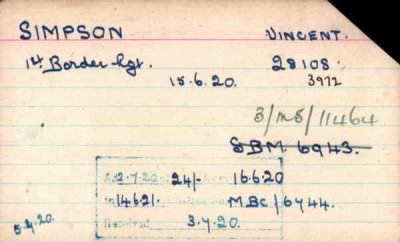 SIMPSON VINCENT.
1st. Border Rgt. 28108.
15.6.20. 3972
3/MS/11464
SBM. 6943.
2.7.20. 24/- 16.6.20
14621. MBC/6444.
Received 3.7.20.
5.4.20.